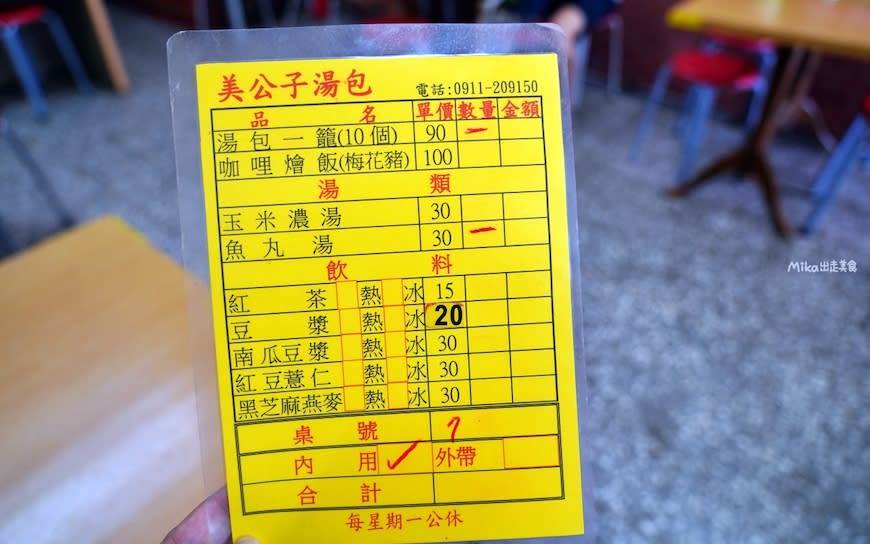 美公子湯包 電話:0911-209150
品 名 單價 數量 金額
湯包一籠(10個) 90 一
咖哩燴飯(梅花豬) 100
湯 類
玉米濃湯 30
魚丸湯 30 一
飲 料
紅茶 熱 冰 15
豆漿 熱 冰 20
南瓜豆漿 熱 冰 30
紅豆薏仁 熱 冰 30
黑芝麻燕麥 熱 冰 30
桌號 7
內用 ✓ 外帶
合計
每星期一公休
Mika出走美食